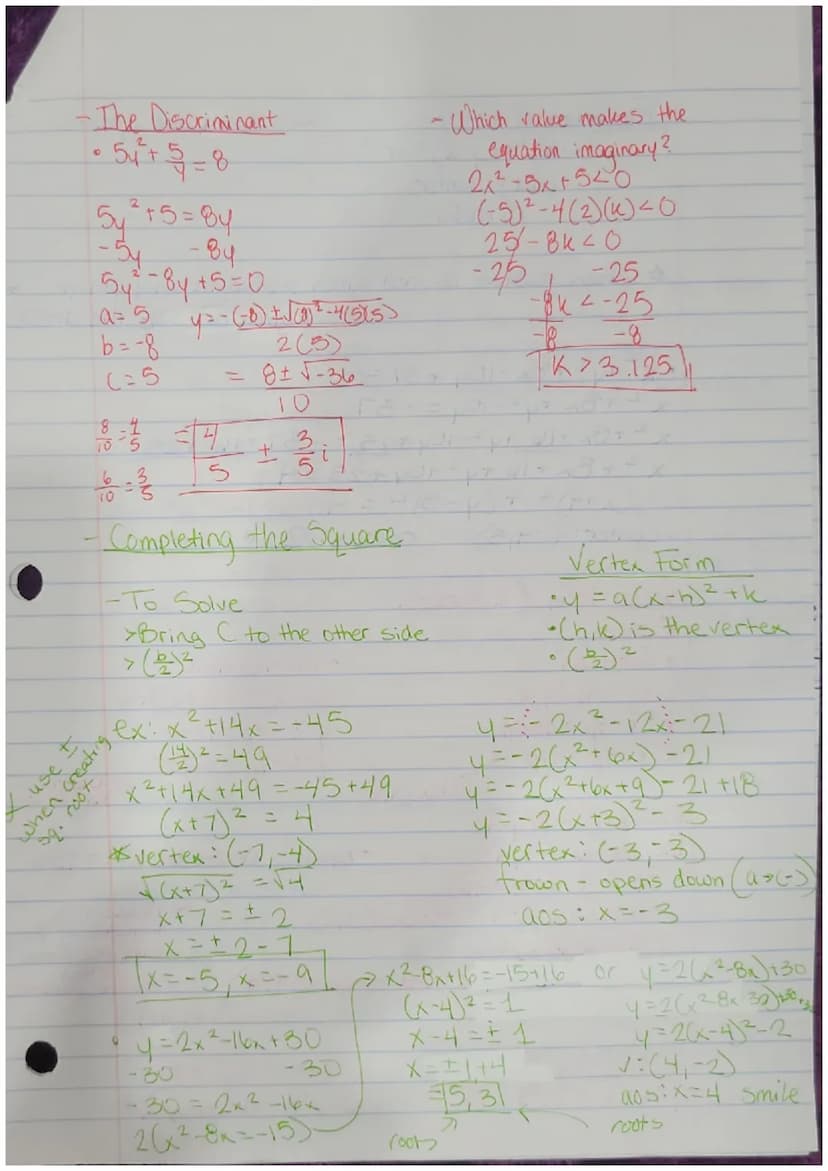 - The Discriminant
• 5y² + 5/y = 8
5y² + 5 = 8y
-5y -8y
5y² - 8y + 5 = 0
a = 5 y = -(-8) ± √(8)² - 4(5)(5)
b = -8 2(5)
c = 5 = 8 ± √-36
10
8/10 = 4/5 = 4/5 ± 3/5 i
6/10 = 3/5
- Which value makes the
equation imaginary?
2x² - 5x + 5 < 0
(-5)² - 4(2)(k) < 0
25 - 8k < 0
-25 -25
-8k < -25
-8 -8
K > 3.125
- Completing the Square
- To Solve
> Bring C to the other side
> (b/2)²
Vertex Form
• y = a(x-h)² + k
• (h,k) is the vertex
• (b/2)²
ex: x² + 14x = -45
(14/2)² = 49
x² + 14x + 49 = -45 + 49
(x+7)² = 4
* vertex: (-7, -4)
√(x+7)² = √4
x + 7 = ± 2
x = ± 2 - 7
x = -5, x = -9
* use ±
when creating
sq. root
y = - 2x² - 12x - 21
y = -2(x² + 6x) - 21
y = -2(x² + 6x + 9) - 21 + 18
y = -2(x+3)² - 3
vertex: (-3, -3)
frown - opens down (a → (-)
aos: x = -3
• y = 2x² - 16x + 30
-30 -30
-30 = 2x² - 16x
2(x² - 8x = -15)
→ x² - 8x + 16 = -15 + 16
(x-4)² = 1
x - 4 = ± 1
x = ± 1 + 4
= 5, 3
roots
or y = 2(x² - 8x) + 30
y = 2(x-4)² - 2
v: (4, -2)
aos: x = 4 smile
roots